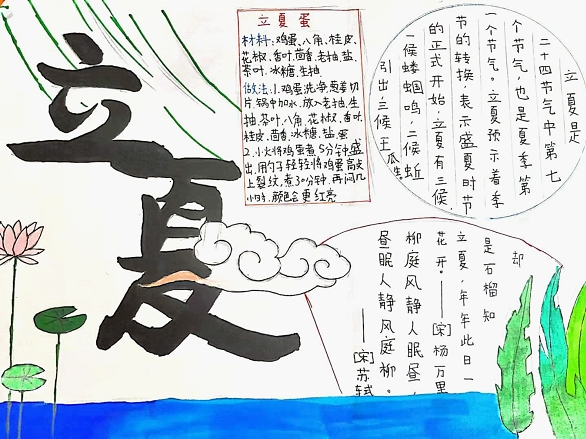 立夏
立夏蛋
材料:鸡蛋、八角、桂皮、
花椒、香叶、茴香、老抽、盐、
茶叶、冰糖、生抽
做法:1.鸡蛋洗净,葱姜切
片,锅中加水,放入老抽、生
抽、茶叶、八角、花椒、香叶、
桂皮、茴香、冰糖、盐、蛋
2.小火将鸡蛋煮5分钟,盛
出,用勺子轻轻将鸡蛋高皮
上裂纹,煮30分钟,再闷几
小时,颜色会更红亮
立夏是
二十四节气中第七
个节气,也是夏季第
一个节气。立夏预示着季
节的转换,表示盛夏时节
的正式开始,立夏有三候,
一候蝼蝈鸣,二候蚯
引出三候王瓜生
却
是石榴知
立夏,年年此日一
花开。——[宋]杨万里
柳庭风静人眠昼,
昼眠人静风庭柳。
——[宋]苏轼